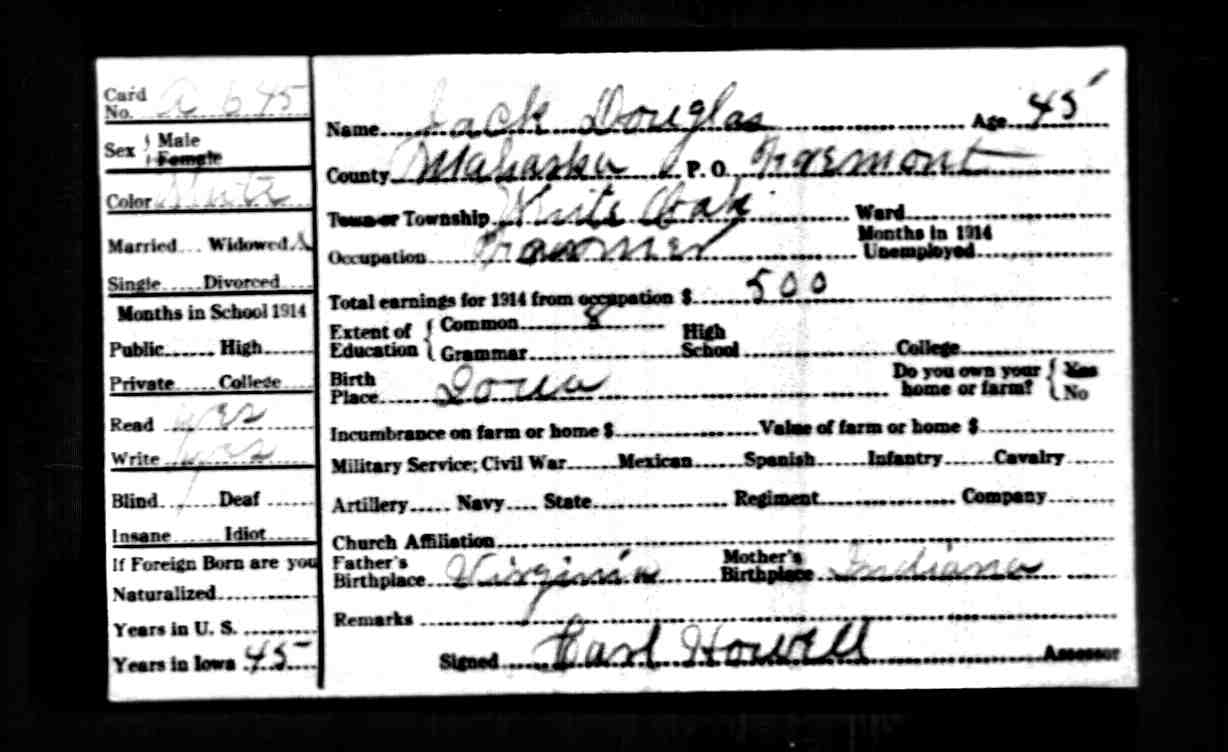 Card No. A 645
Sex Male
Female
Color White
Married... Widowed X
Single..... Divorced.....
Months in School 1914
Public...... High......
Private..... College.....
Read yes
Write yes
Blind..... Deaf ......
Insane...... Idiot.....
If Foreign Born are you
Naturalized............
Years in U. S. .........
Years in Iowa 45
Name Jack Douglas Age 45
County Mahaska P. O. Fremont
Town or Township White Oak Ward
Months in 1914
Occupation Farmer Unemployed
Total earnings for 1914 from occupation $ 500
Extent of Education { Common 8 High School College
Grammar
Birth Place Iowa Do you own your home or farm? { Yes
No
Incumbrance on farm or home $ Value of farm or home $
Military Service; Civil War...... Mexican...... Spanish...... Infantry...... Cavalry......
Artillery..... Navy.... State............ Regiment............ Company........
Church Affiliation
Father's Birthplace Virginia Mother's Birthplace Indiana
Remarks
Signed Earl Howell Assessor